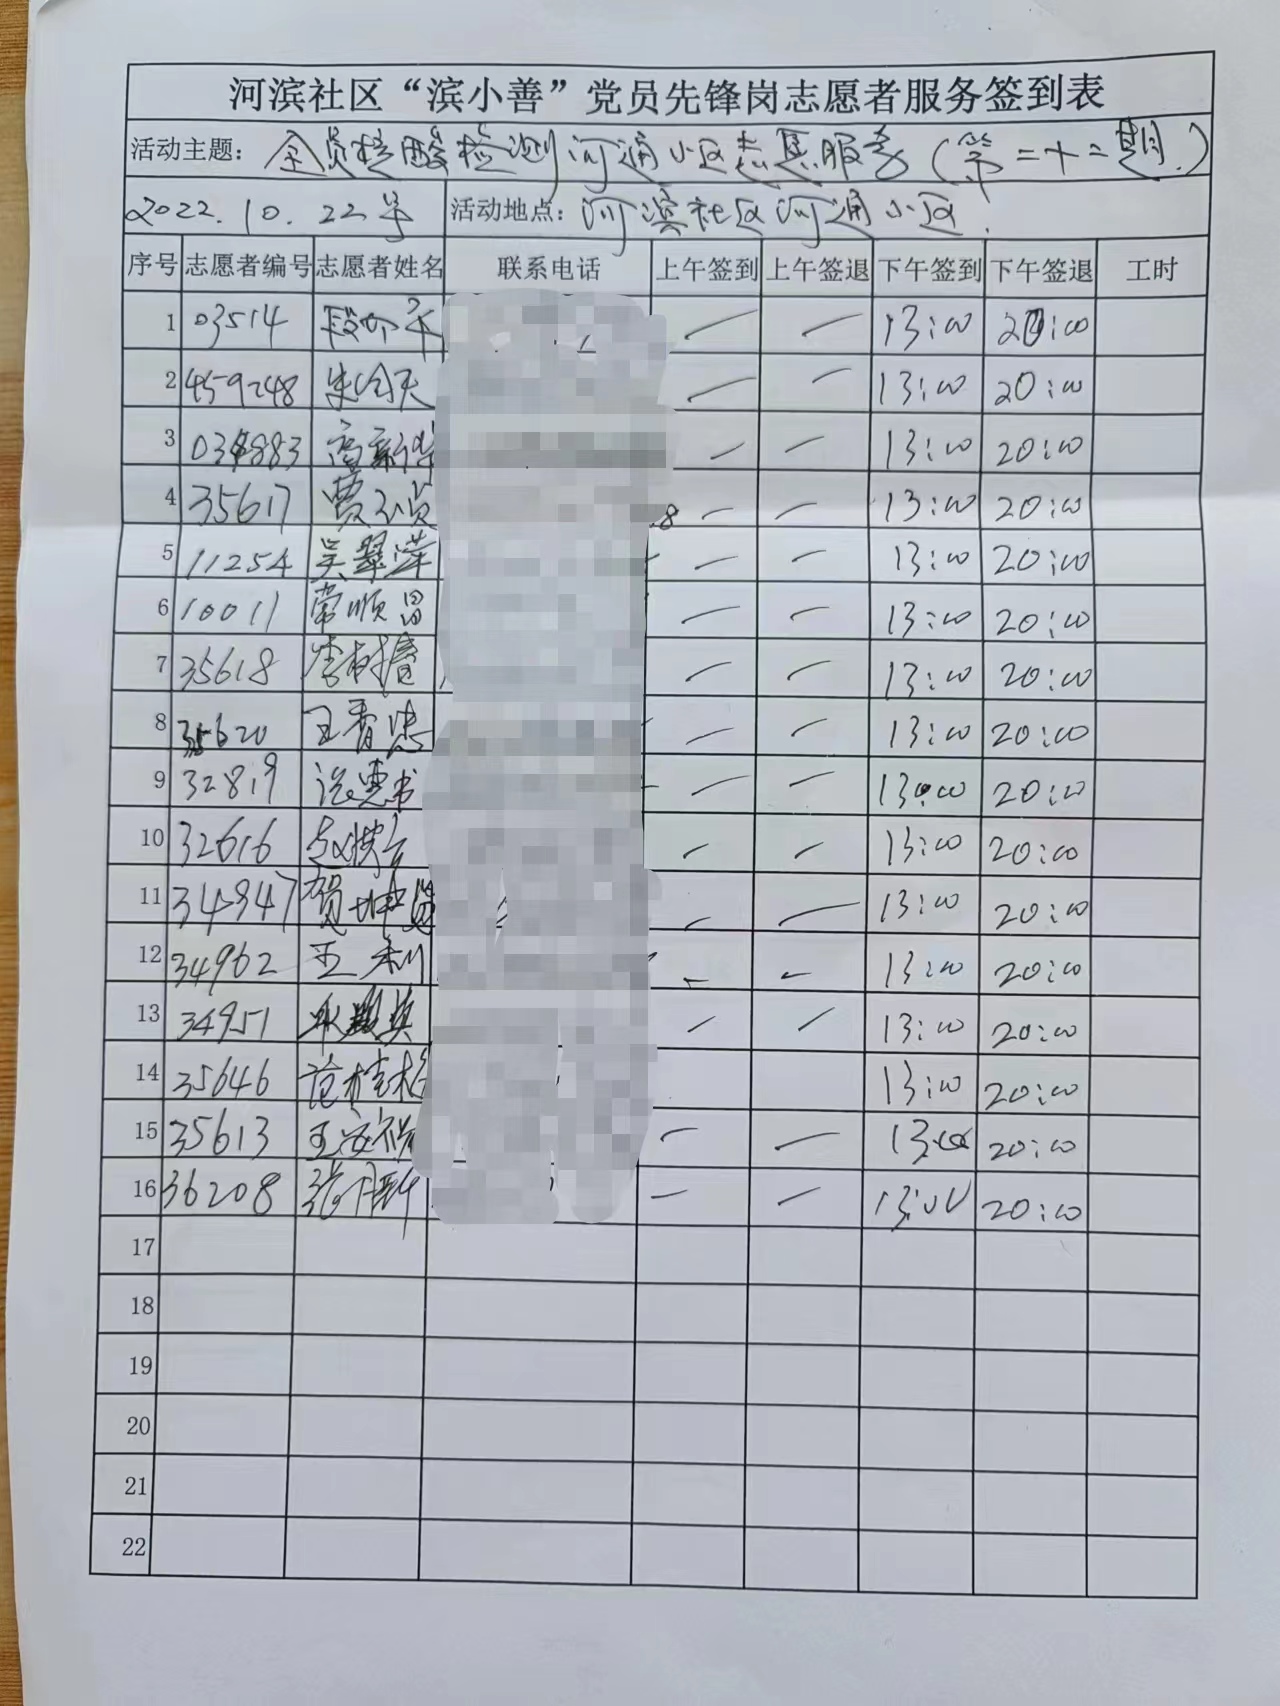 河滨社区“滨小善”党员先锋岗志愿者服务签到表
活动主题: 全员核酸检测河通小区志愿服务(第二十二期.)
2022.10.22号 活动地点: 河滨社区河通小区.
序号 志愿者编号 志愿者姓名 联系电话 上午签到 上午签退 下午签到 下午签退 工时
1 03514 — — 13:00 20:00
2 459248 — — 13:00 20:00
3 高新 — — 13:00 20:00
4 35617 贾 8 — — 13:00 20:00
5 11254 吴翠萍 — — 13:00 20:00
6 10011 常顺昌 — — 13:00 20:00
7 35618 李树 — — 13:00 20:00
8 35620 王香 — — 13:00 20:00
9 32819 — — 13:00 20:00
10 32616 赵 — — 13:00 20:00
11 34947 贺坤 — — 13:00 20:00
12 34962 王利 — — 13:00 20:00
13 34951 — — 13:00 20:00
14 35646 范桂 13:00 20:00
15 35613 王 — — 13:00 20:00
16 36208 张 — — 13:00 20:00
17
18
19
20
21
22